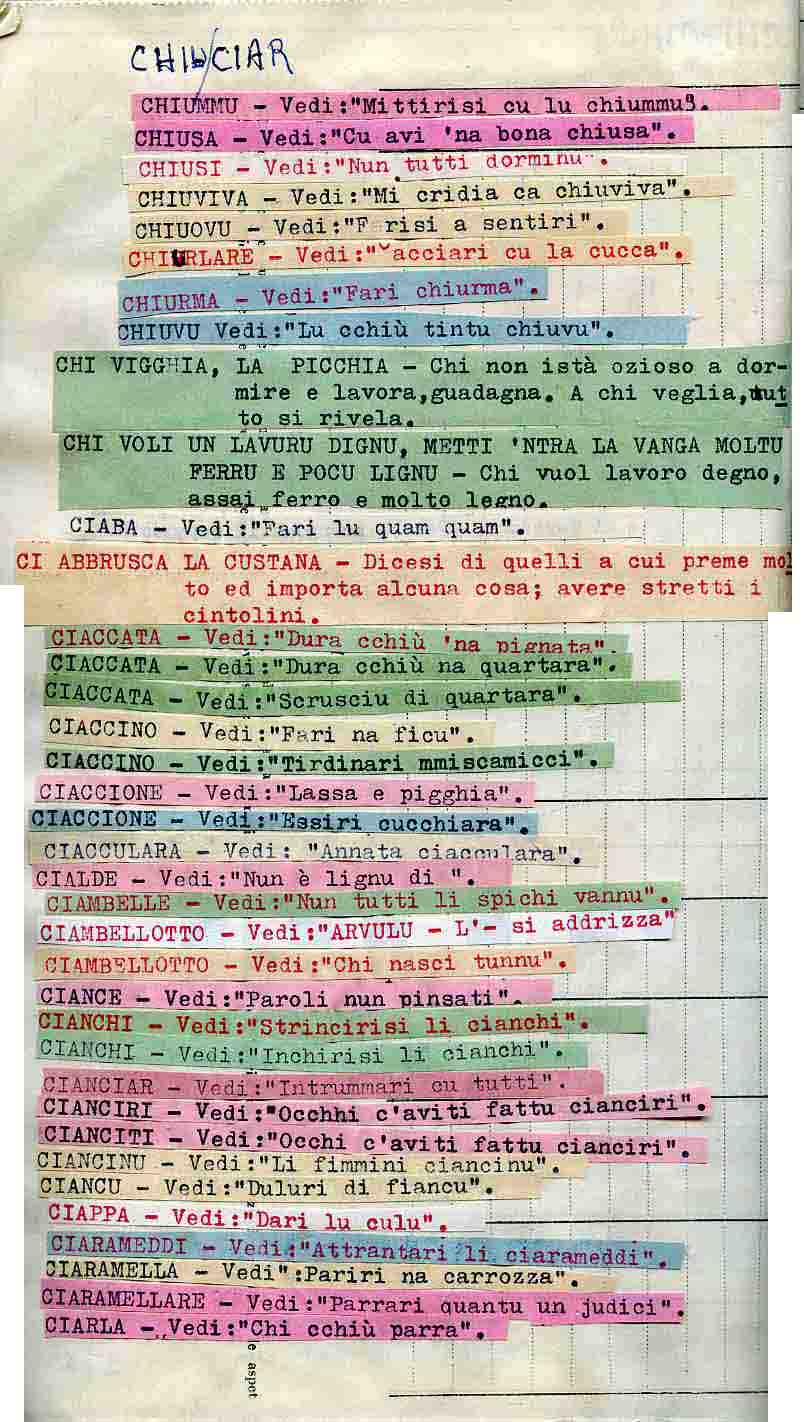 CHIU/CIAR
CHIUMMU - Vedi:"Mittirisi cu lu chiummu".
CHIUSA - Vedi:"Cu avi 'na bona chiusa".
CHIUSI - Vedi:"Nun tutti dorminu".
CHIUVIVA - Vedi:"Mi cridia ca chiuviva".
CHIUOVU - Vedi:"F risi a sentiri".
CHIURLARE - Vedi:" acciari cu la cucca".
CHIURMA - Vedi:"Fari chiurma".
CHIUVU Vedi:"Lu cchiù tintu chiuvu".
CHI VIGGHIA, LA PICCHIA - Chi non istà ozioso a dor-
mire e lavora,guadagna. A chi veglia,tut
to si rivela.
CHI VOLI UN LAVURU DIGNU, METTI 'NTRA LA VANGA MOLTU
FERRU E POCU LIGNU - Chi vuol lavoro degno,
assai ferro e molto legno.
CIABA - Vedi:"Fari lu quam quam".
CI ABBRUSCA LA CUSTANA - Dicesi di quelli a cui preme mol
to ed importa alcuna cosa; avere stretti i
cintolini.
CIACCATA - Vedi:"Dura cchiù 'na pignata".
CIACCATA - Vedi:"Dura cchiù na quartara".
CIACCATA - Vedi:"Scrusciu di quartara".
CIACCINO - Vedi:"Fari na ficu".
CIACCINO - Vedi:"Tirdinari mmiscamicci".
CIACCIONE - Vedi:"Lassa e pigghia".
CIACCIONE - Vedi:"Essiri cucchiara".
CIACCULARA - Vedi: "Annata ciacculara".
CIALDE - Vedi:"Nun è lignu di ".
CIAMBELLE - Vedi:"Nun tutti li spichi vannu".
CIAMBELLOTTO - Vedi:"ARVULU - L'- si addrizza"
CIAMBELLOTTO - Vedi:"Chi nasci tunnu".
CIANCE - Vedi:"Paroli nun pinsati".
CIANCHI - Vedi:"Strincirisi li cianchi".
CIANCHI - Vedi:"Inchirisi li cianchi".
CIANCIAR - Vedi:"Intrummari cu tutti".
CIANCIRI - Vedi:"Occhhi c'aviti fattu cianciri".
CIANCITI - Vedi:"Occhi c'aviti fattu cianciri".
CIANCINU - Vedi:"Li fimmini ciancinu".
CIANCU - Vedi:"Duluri di fiancu".
CIAPPA - Vedi:"Dari lu culu".
CIARAMEDDI - Vedi:"Attrantari li ciarameddi".
CIARAMELLA - Vedi":Pariri na carrozza".
CIARAMELLARE - Vedi:"Parrari quantu un judici".
CIARLA - Vedi:"Chi cchiù parra".
e aspot